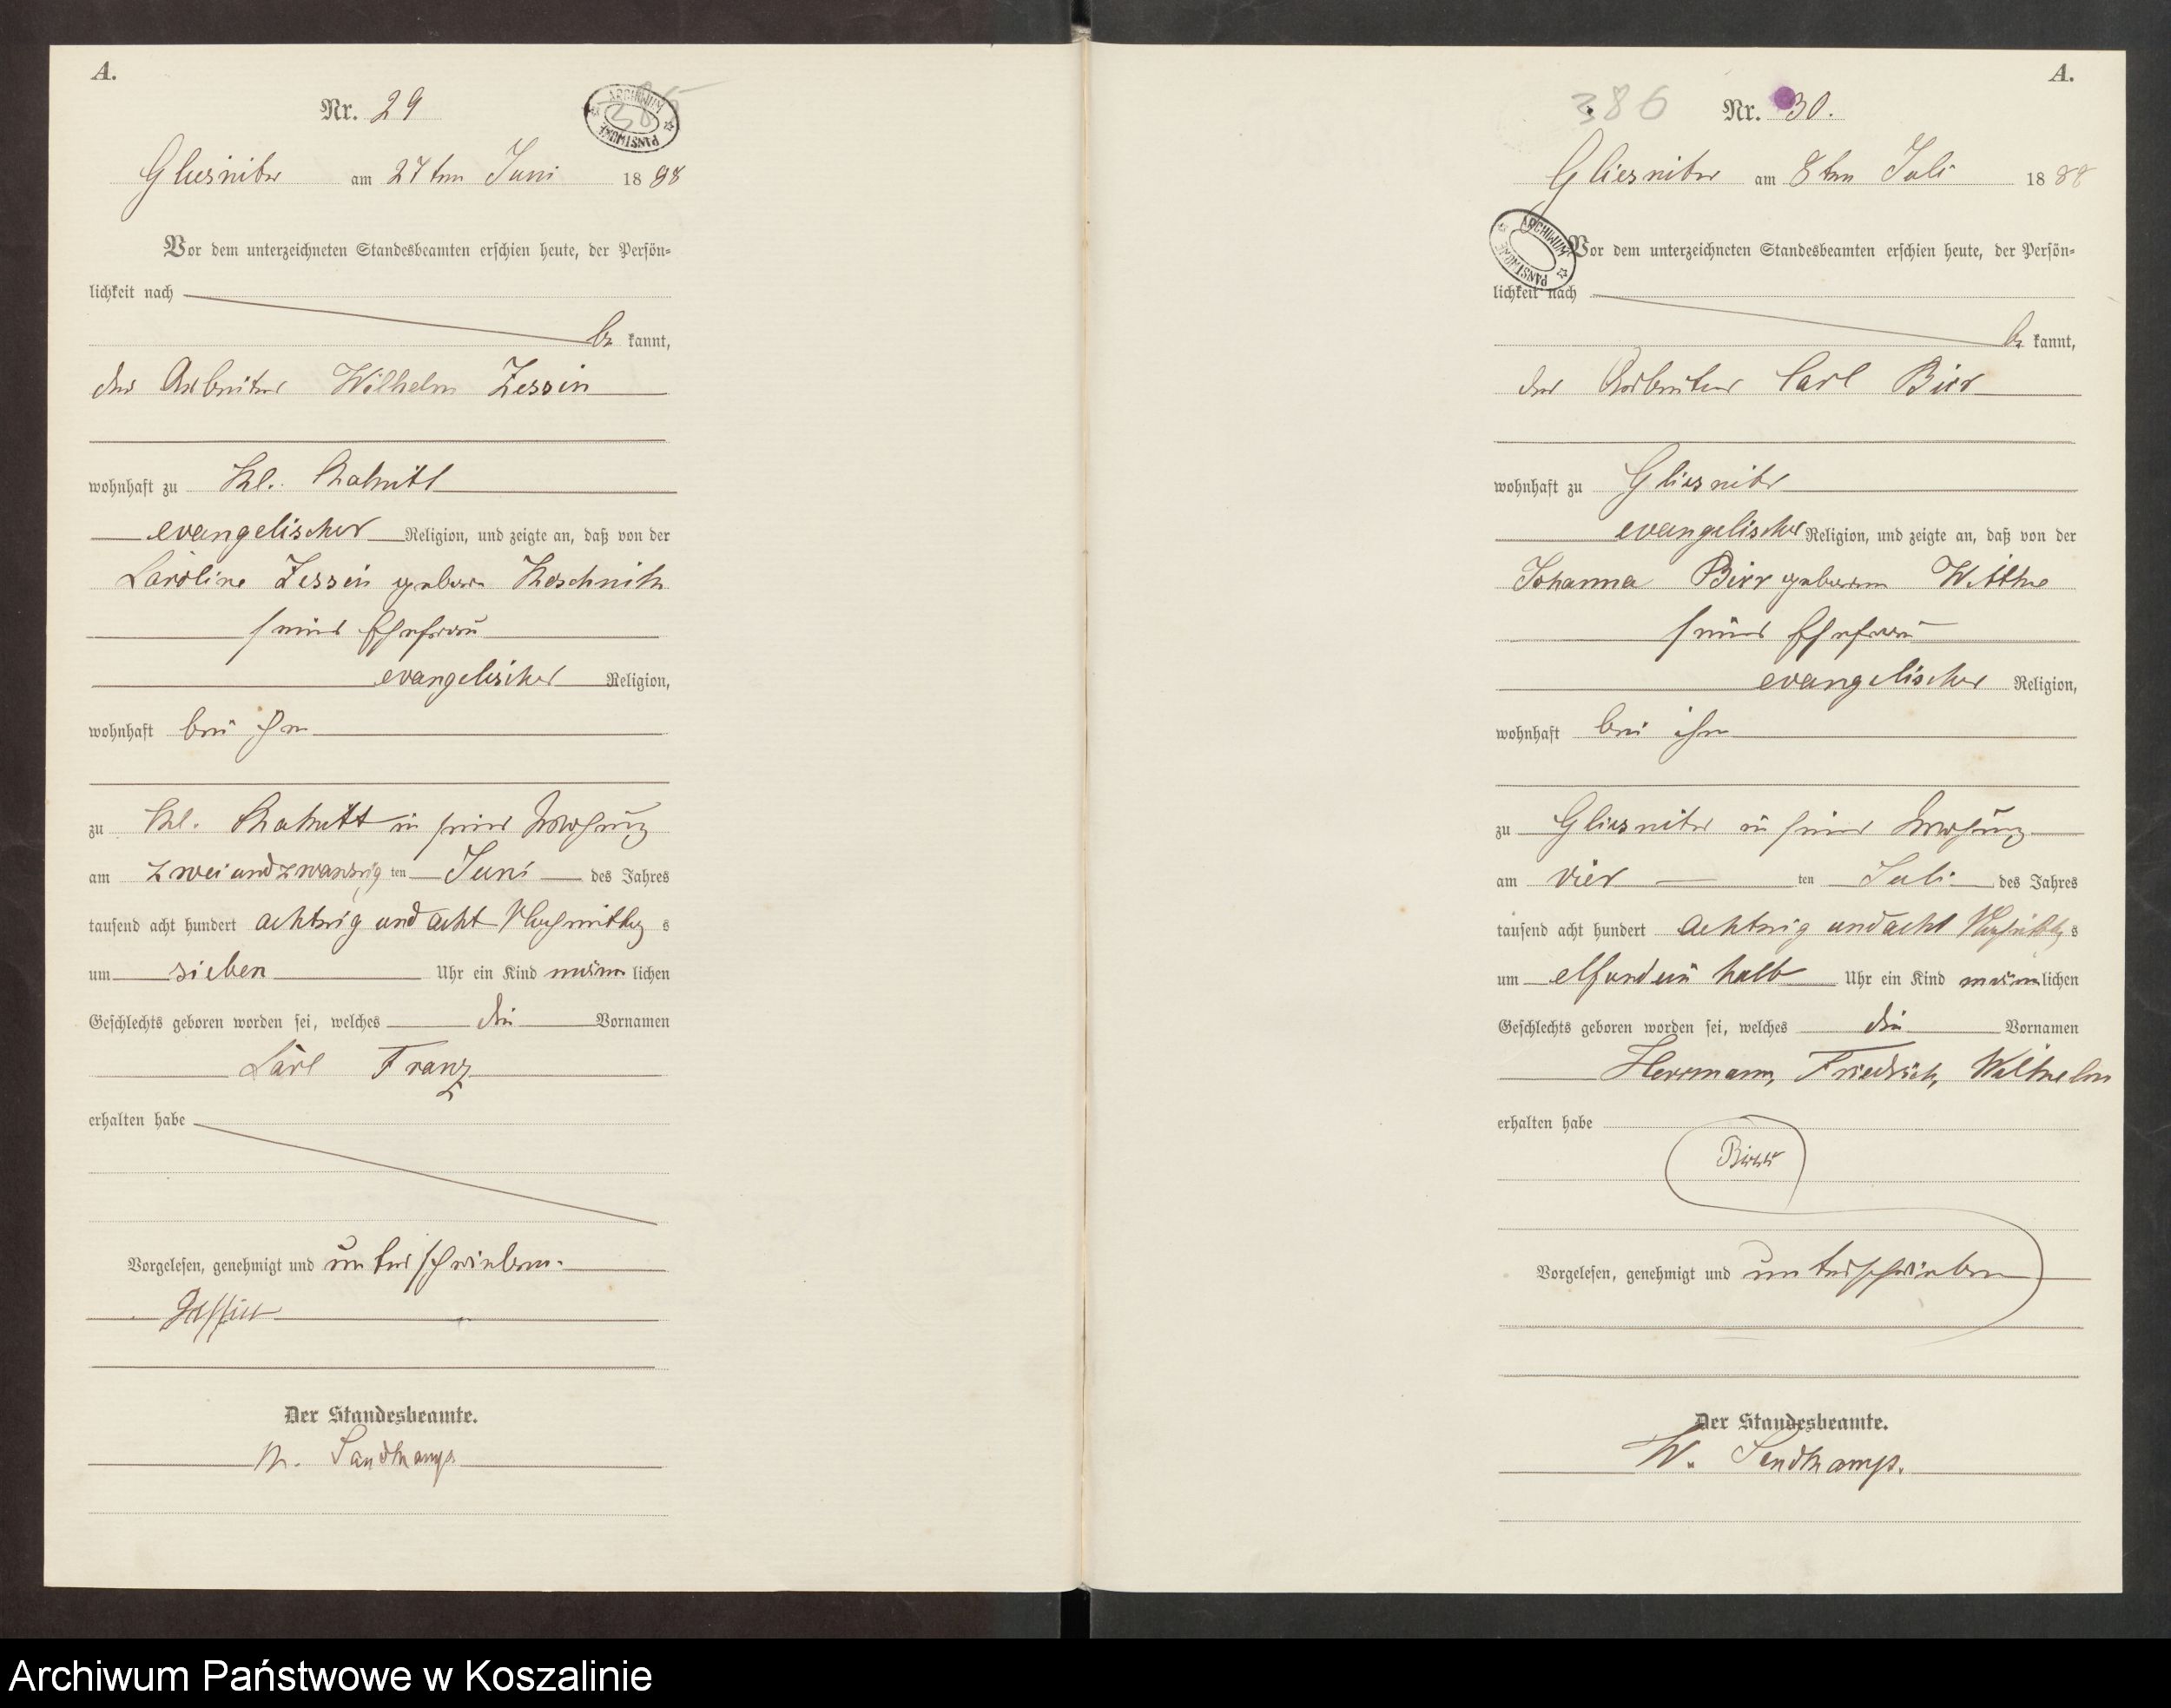 A.
Nr. 29
ARCHIWUM PAŃSTWOWE
385
Gliesnitz am 27ten Juni 1888
Vor dem unterzeichneten Standesbeamten erschien heute, der Persön=
lichkeit nach
be kannt,
der Arbeiter Wilhelm Zessin
wohnhaft zu Kl.
evangelischer Religion, und zeigte an, daß von der
Caroline Zessin geboren Koschnik
seiner Ehefrau
evangelischer Religion,
wohnhaft bei ihm
zu Kl. in seiner Wohnung
am zweiundzwanzig ten Juni des Jahres
tausend acht hundert achtzig und acht Nachmittag s
um sieben Uhr ein Kind männ lichen
Geschlechts geboren worden sei, welches die Vornamen
Carl Franz
erhalten habe
Vorgelesen, genehmigt und unterschrieben.
Zessin
Der Standesbeamte.
W. Sandkamp
A.
386 Nr. 30.
Gliesnitz am 8ten Juli 1888
ARCHIWUM PAŃSTWOWE
Vor dem unterzeichneten Standesbeamten erschien heute, der Persön=
lichkeit nach
be kannt,
der Arbeiter Carl Birr
wohnhaft zu Gliesnitz
evangelischer Religion, und zeigte an, daß von der
Johanna Birr geborenen Witthe
seiner Ehefrau
evangelischer Religion,
wohnhaft bei ihm
zu Gliesnitz in seiner Wohnung
am vier ten Juli des Jahres
tausend acht hundert achtzig und acht s
um elfundein halb Uhr ein Kind männlichen
Geschlechts geboren worden sei, welches die Vornamen
Herrmann, Friedrich, Wilhelm
erhalten habe
Birr
Vorgelesen, genehmigt und unterschrieben
Der Standesbeamte.
W. Sandkamp.
Archiwum Państwowe w Koszalinie